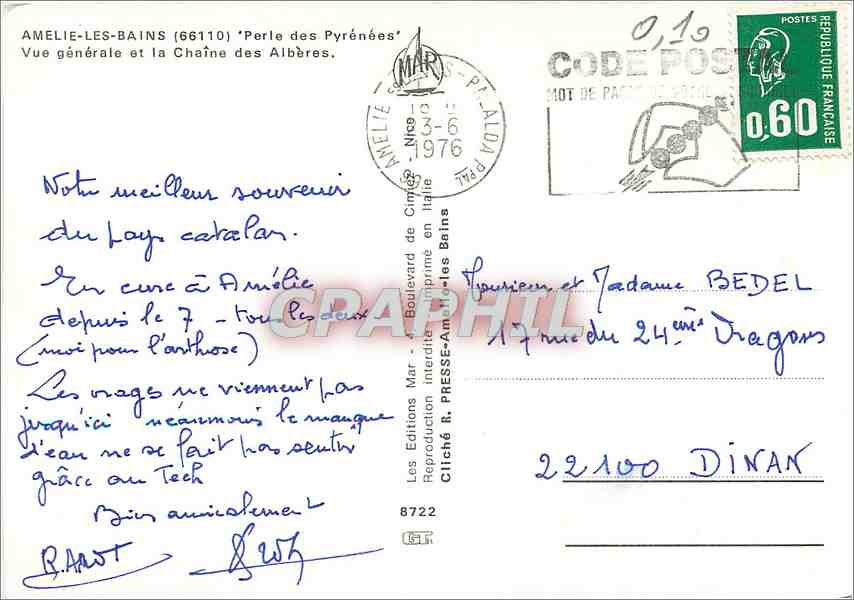 AMELIE-LES-BAINS (66110) "Perle des Pyrénées"
Vue générale et la Chaîne des Albères.
0,10
MAR
AMELIE PALALDA PPAL
13-6
1976
CODE POSTAL
MOT DE PASSE DE
POSTES
REPUBLIQUE FRANÇAISE
0,60
Notre meilleur souvenir
du pays catalan.
En cure à Amélie
depuis le 7 - tous les deux
(moi pour l'arthrose)
Les orages ne viennent pas
jusqu'ici néanmoins le manque
d'eau ne se fait pas sentir
grâce au Tech
Bien amicalement
R. AMOT
Les Editions Mar - Boulevard de Cimiez Nice
Reproduction interdite - Imprimé en Italie
Cliché R. PRESSE-Amélie-les Bains
8722
Monsieur et Madame BEDEL
17 rue du 24ème Dragons
22100 DINAN
CPARPHIL